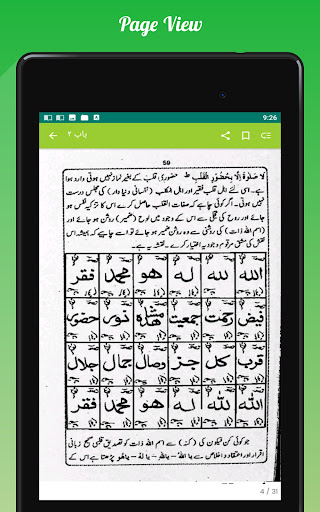 Page View
9:26
باب ۲
59
لَا صَلٰوةَ اِلَّا بِحُضُوْرِ الْقَلْبِ ط حضوریٔ قلب کے بغیر نماز نہیں ہوتی وارد ہوا
ہے۔ اسی لئے اہل قلب فقیر اور اہل الکلب (نفسانی دنیا دار) کی مجلس درست
نہیں آتی۔ اگر کوئی چاہے کہ صفات القلب حاصل کرے اس کا تزکیہ نفس ہو
جائے اور روح کی تجلی سے اس کے وجود میں لوح (ضمیر) روشن ہو جائے اور
(اسم اللہ ذات) کی روشنی سے وہ روشن ضمیر ہو جائے تو اسے چاہیے کہ ہمیشہ اس
نقش کی مشق مرقوم وجودیہ اختیار کرے۔ نقش یہ ہے۔
اللہ للہ لہ ھو محمد فقر
فیض رحمت جمعیت مشاہدہ نور حضوری
قرب کل جز وصال جمال جلال
اللہ للہ لہ ھو محمد فقر
جو کوئی کن فیکون کی (کنہ) سے اسم اللہ ذات کو تصدیق قلبی صحیح زبانی
اقرار اور اعتقاد و اخلاص سے یا اللہ۔ یا للہ۔ یا لہ۔ یا ھو پڑھتا ہے اس کے
4 / 31